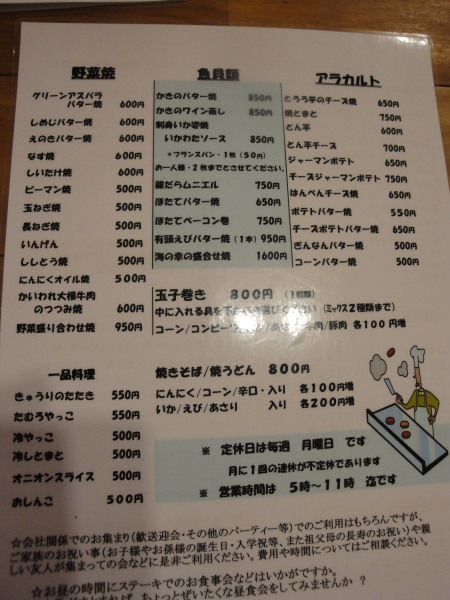 野菜焼
グリーンアスパラ
バター焼 600円
しめじバター焼 600円
えのきバター焼 600円
なす焼 600円
しいたけ焼 600円
ピーマン焼 500円
玉ねぎ焼 500円
長ねぎ焼 500円
いんげん 500円
ししとう焼 500円
にんにくオイル焼 500円
かいわれ大根牛肉
のつつみ焼 600円
野菜盛り合わせ焼 950円
魚貝類
かきのバター焼 850円
かきのワイン蒸し 850円
刺身いか姿焼
いかわたソース 850円
*フランスパン・1枚(50円)
お一人様・2枚までとさせてください。
銀だらムニエル 750円
ほたてバター焼 650円
ほたてベーコン巻 750円
有頭えびバター焼(1本)950円
海の幸の盛合せ焼 1600円
アラカルト
とろろ芋のチーズ焼 650円
焼とまと 750円
とん平 600円
とん平チーズ 700円
ジャーマンポテト 650円
チーズジャーマンポテト 750円
はんぺんチーズ焼 650円
ポテトバター焼 550円
チーズポテトバター焼 650円
ぎんなんバター焼 500円
コーンバター焼 500円
玉子巻き 800円 (1種類)
中に入れる具を下から選びください(ミックス2種類まで)
コーン/コンビーフ/ /あさり/牛肉/豚肉 各100円増
一品料理
きゅうりのたたき 550円
たむろやっこ 550円
冷やっこ 500円
冷しとまと 500円
オニオンスライス 500円
おしんこ 500円
焼きそば/焼うどん 800円
にんにく/コーン/辛口・入り 各100円増
いか/えび/あさり 入り 各200円増
※ 定休日は毎週 月曜日 です
月に1回の連休が不定休であります
※ 営業時間は 5時〜11時 迄です
☆会社関係でのお集まり(歓送迎会・その他のパーティー等)でのご利用はもちろんですが、
ご家族のお祝い事(お子様やお孫様の誕生日・入学祝等、また祖父母の長寿のお祝い)や親
しい友人が集まっての会などに是非ご利用ください。費用や時間についてはご相談ください。
☆お昼の時間にステーキでのお食事会などはいかがですか。
ちょっとぜいたくな昼食会をしてみませんか?